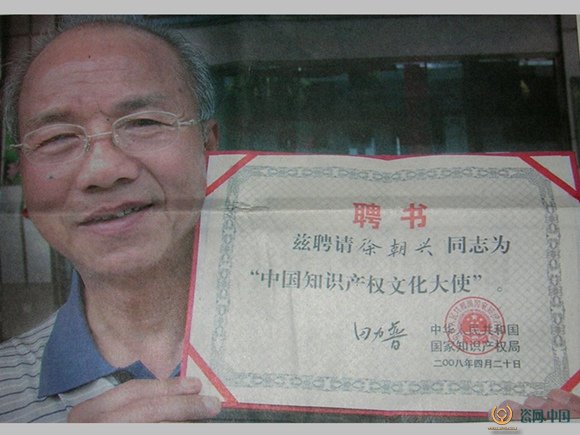 聘书
兹聘请徐朝兴同志为
“中国知识产权文化大使”。
田力普
中华人民共和国
国家知识产权局
二〇〇八年四月二十日
瓷网中国